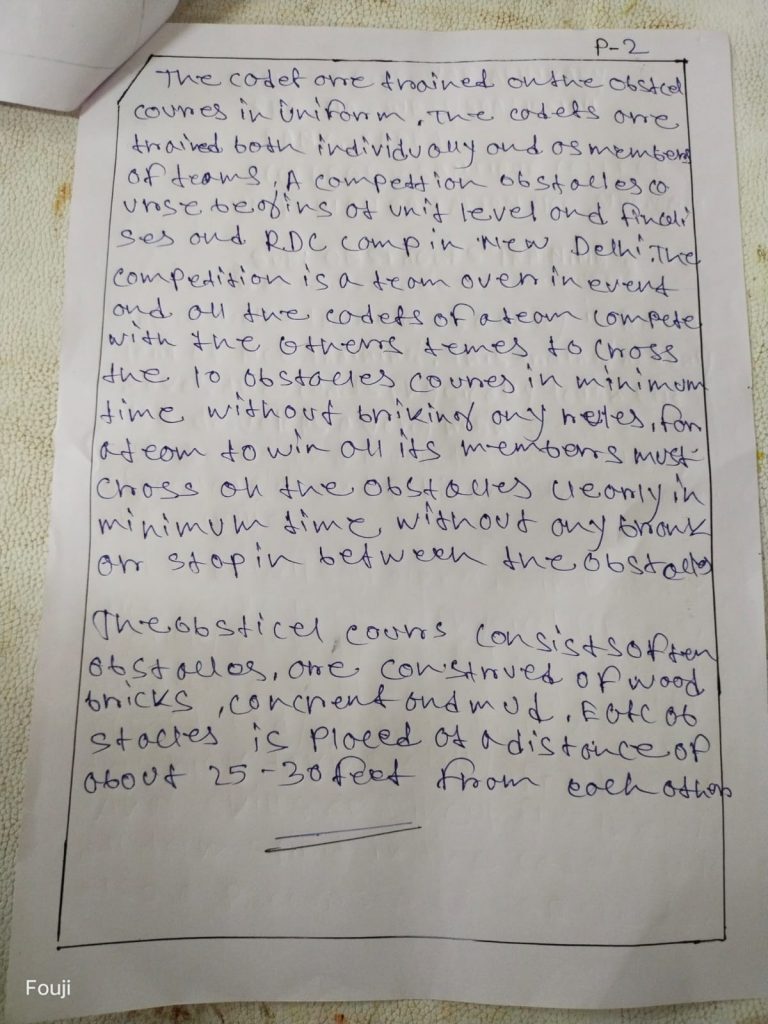 P-2
The cadet are trained on the obsticel
coures in uniform. The cadets are
trained both individually and as members
of teams. A compettion obstacles co
urse begins at unit level and finali
ses and RDC camp in New Delhi. The
compedition is a team over in event
and all the cadets of a team compete
with the others temes to cross
the 10 obstacles coures in minimum
time without briking any rules, for
a team to win all its members must
cross oh the obstacles clearly in
minimum time without any brank
or stop in between the obstacles
The obsticel cours consists of ten
obstacles, are construed of wood
bricks, concrent and mud. Eatc ob
stacles is placed at a distance of
about 25-30 feet from each other
Fouji